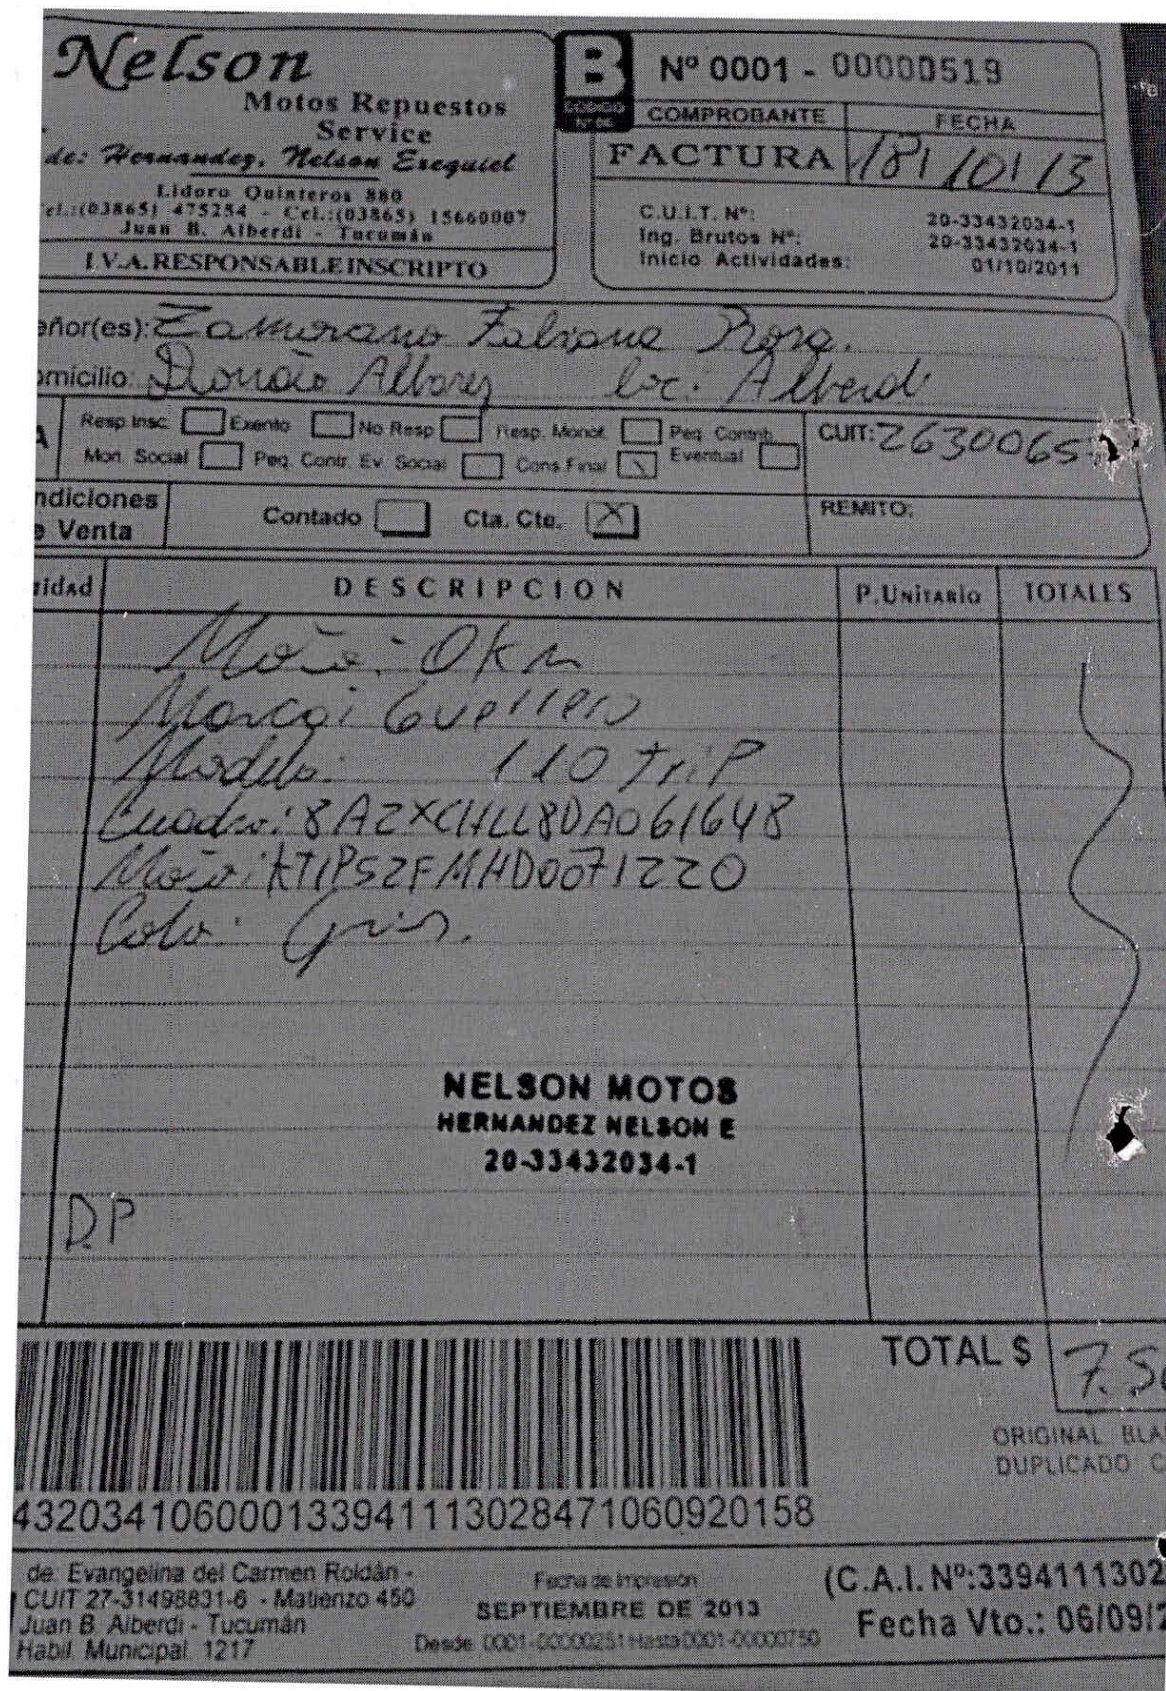 Nelson
Motos Repuestos
Service
de: Hernandez, Nelson Exequiel
Lidoro Quinteros 880
Tel.:(03865) 475254 - Cel.:(03865) 15660007
Juan B. Alberdi - Tucumán
I.V.A. RESPONSABLE INSCRIPTO
B
CODIGO
Nº 06
Nº 0001 - 00000519
COMPROBANTE FECHA
FACTURA 18/10/13
C.U.I.T. Nº: 20-33432034-1
Ing. Brutos Nº: 20-33432034-1
Inicio Actividades: 01/10/2011
eñor(es): Zamorano Fabiana Rosa.
omicilio: Alvarez loc: Alberdi
A Resp Insc. Exento No Resp Resp. Monot. Peq. Contrib.
Mon. Social Peq. Contr. Ev. Social Cons.Final Eventual
CUIT: 2630065
ndiciones
e Venta
Contado Cta. Cte. X
REMITO:
tidad DESCRIPCION P.UNITARIO TOTALES
Moto: 0Km
Marca: Guerrero
Modelo: 110 Trip
Cuadro: 8A2XCHLL8DA061648
Motor: KT1P52FMHD0071220
Color: Gris.
NELSON MOTOS
HERNANDEZ NELSON E
20-33432034-1
D.P
TOTAL $ 7.5
ORIGINAL BLA
DUPLICADO C
432034106000133941113028471060920158
de: Evangelina del Carmen Roldán -
CUIT 27-31498831-6 - Matienzo 450
Juan B. Alberdi - Tucumán
Habil. Municipal 1217
Fecha de Impresión
SEPTIEMBRE DE 2013
Desde 0001-00000251 Hasta 0001-00000750
(C.A.I. Nº:3394111302
Fecha Vto.: 06/09/2